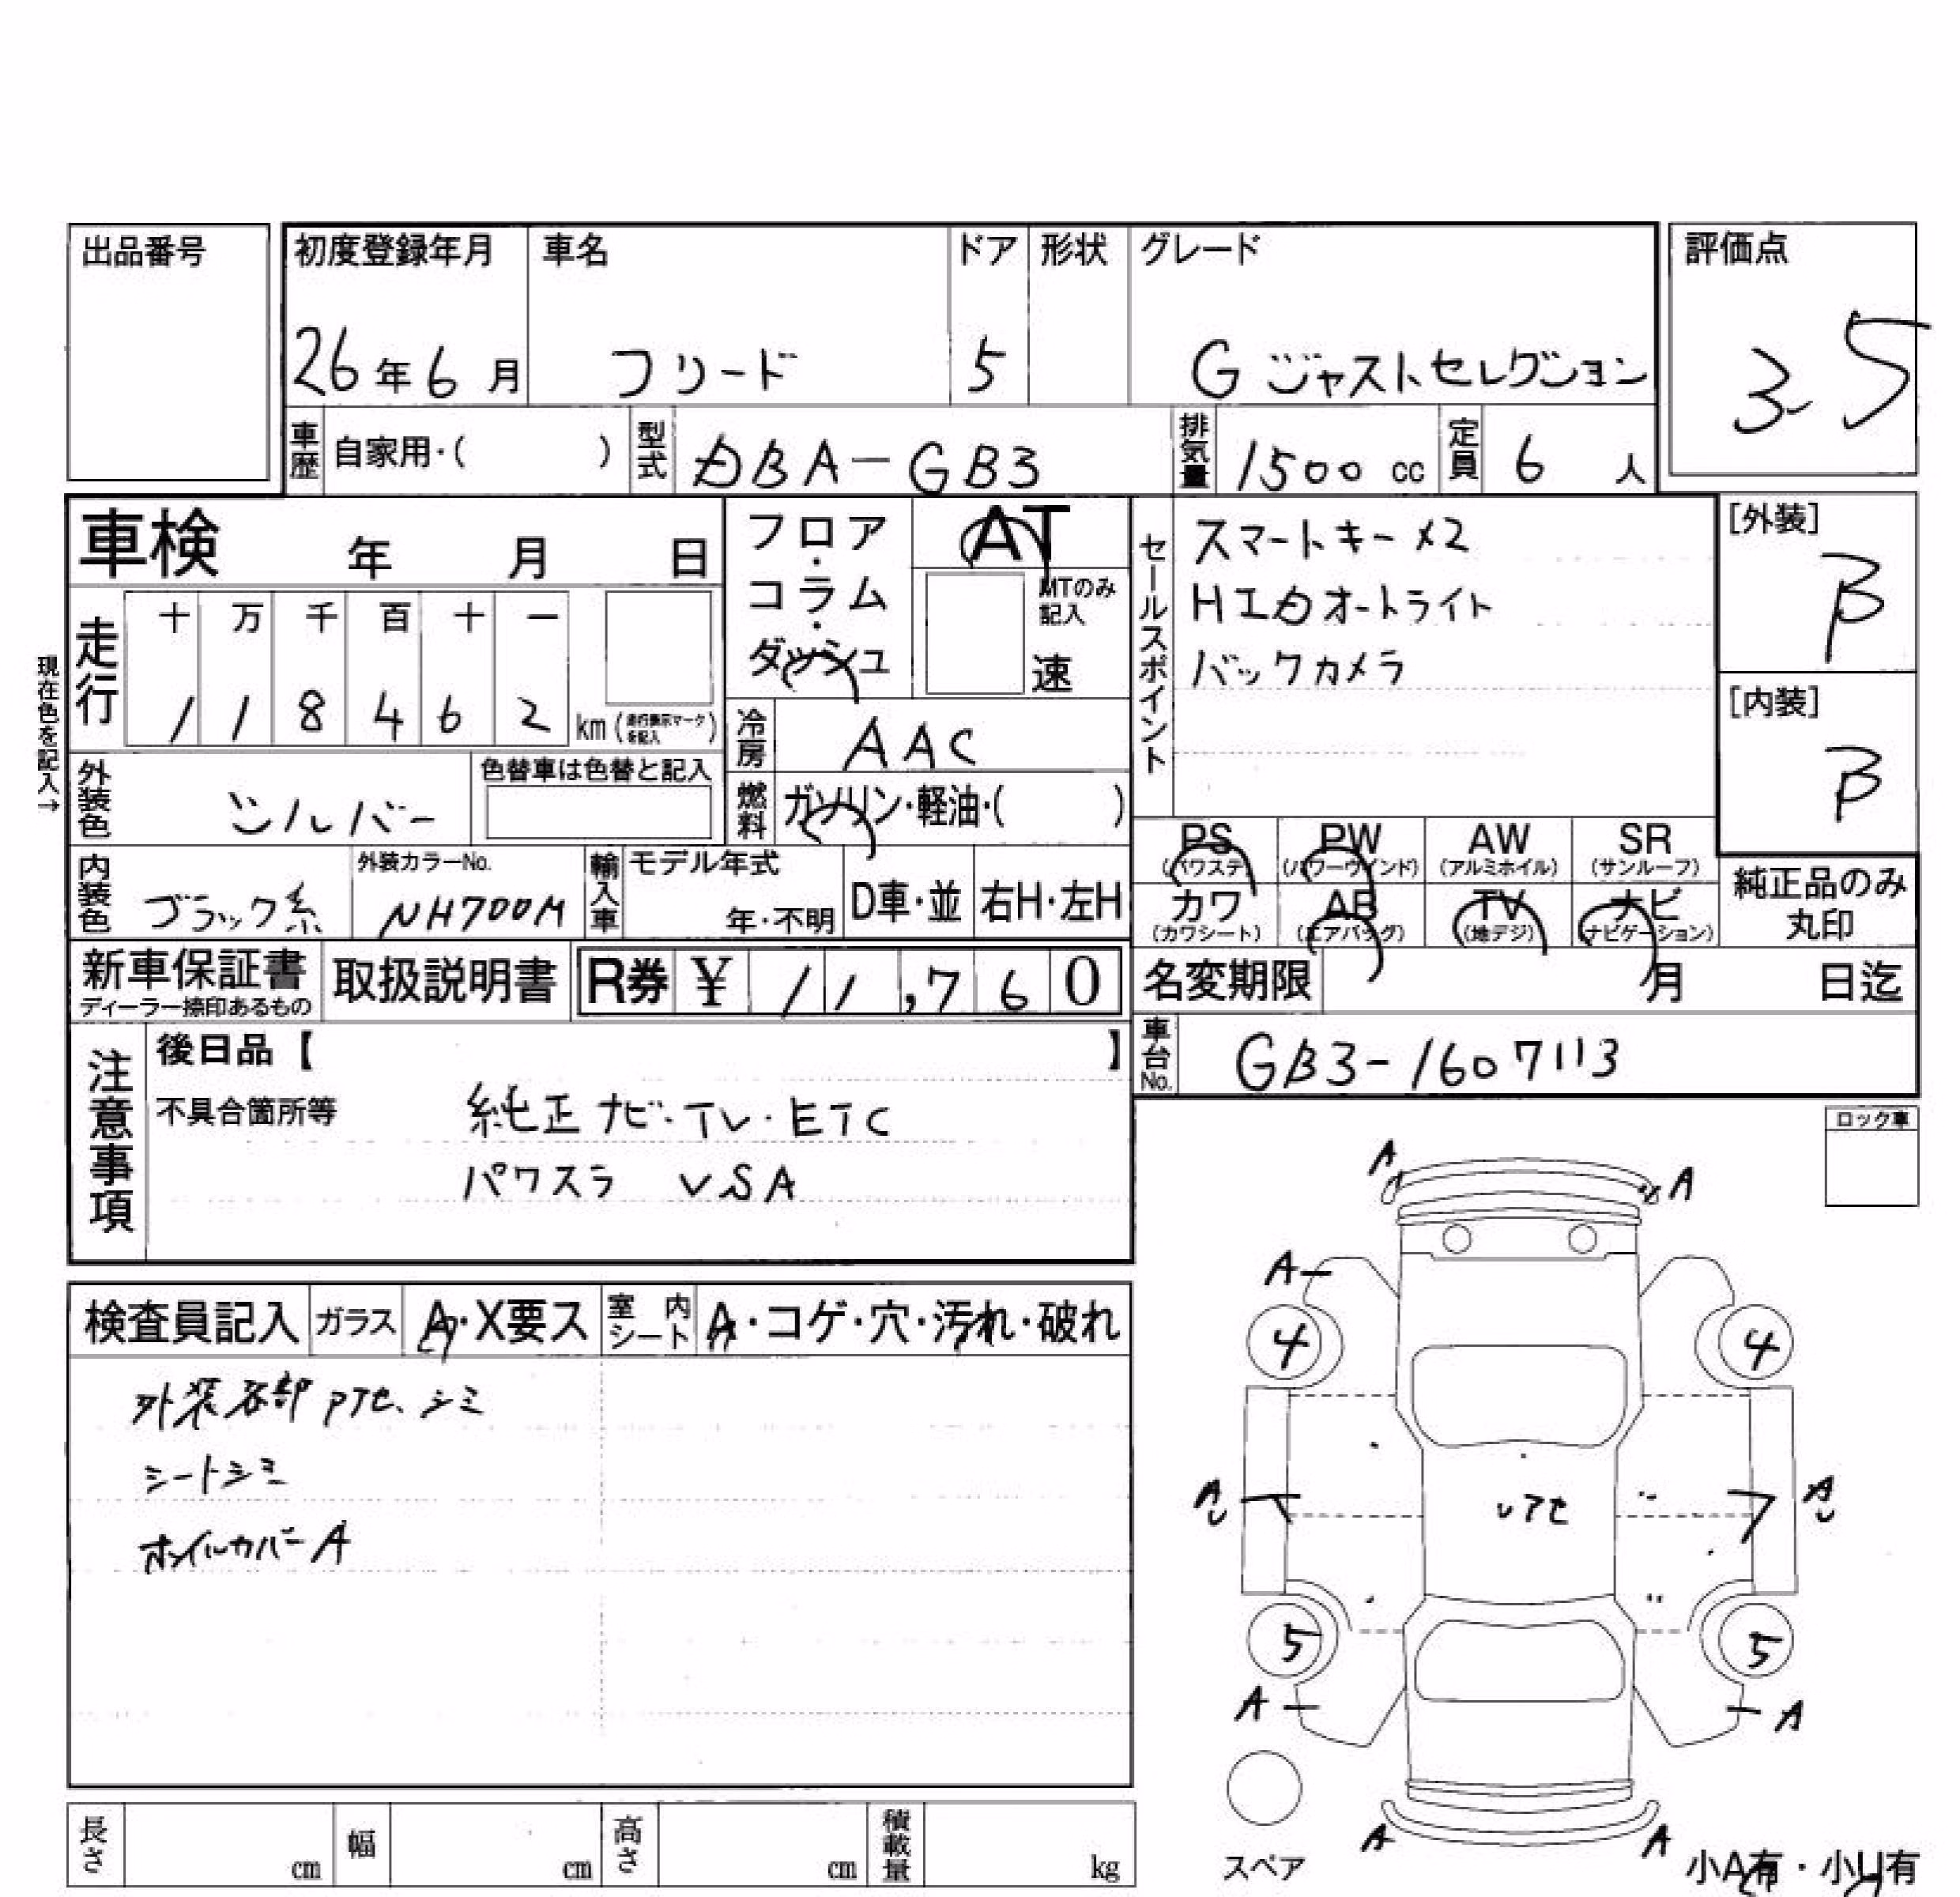 出品番号
初度登録年月 車名 ドア 形状 グレード 評価点
26年6月 フリード 5 G ジャストセレクション 3.5
車歴 自家用・( ) 型式 DBA-GB3 排気量 1500 cc 定員 6 人
車検 年 月 日
フロア・コラム・ダッシュ AT
MTのみ記入 速
セールスポイント
スマートキー×2
HIDオートライト
バックカメラ
[外装] B
[内装] B
現在色を記入→
走行 十 万 千 百 十 一
1 1 8 4 6 2 km (走行表示マークを記入)
冷房 AAC
外装色 シルバー 色替車は色替と記入
燃料 ガソリン・軽油・( )
PS (パワステ) PW (パワーウインド) AW (アルミホイル) SR (サンルーフ)
カワ (カワシート) AB (エアバッグ) TV (地デジ) ナビ (ナビゲーション)
純正品のみ丸印
内装色 ブラック系 外装カラーNo. NH700M 輸入車 モデル年式 年・不明 D車・並 右H・左H
新車保証書 ディーラー捺印あるもの 取扱説明書 R券 ¥ 11,760
名変期限 月 日迄
車台No. GB3-1607113
注意事項 後日品【 】
不具合箇所等 純正ナビ・TV・ETC
パワスラ VSA
ロック車
検査員記入 ガラス A・X要ス 室内シート A・コゲ・穴・汚れ・破れ
外装各部 PTセ、シミ
シートシミ
ホイルカバーA
A A
A
4 4
A A
5 5
A A
A A
スペア
小A有・小U有
長さ cm 幅 cm 高さ cm 積載量 kg